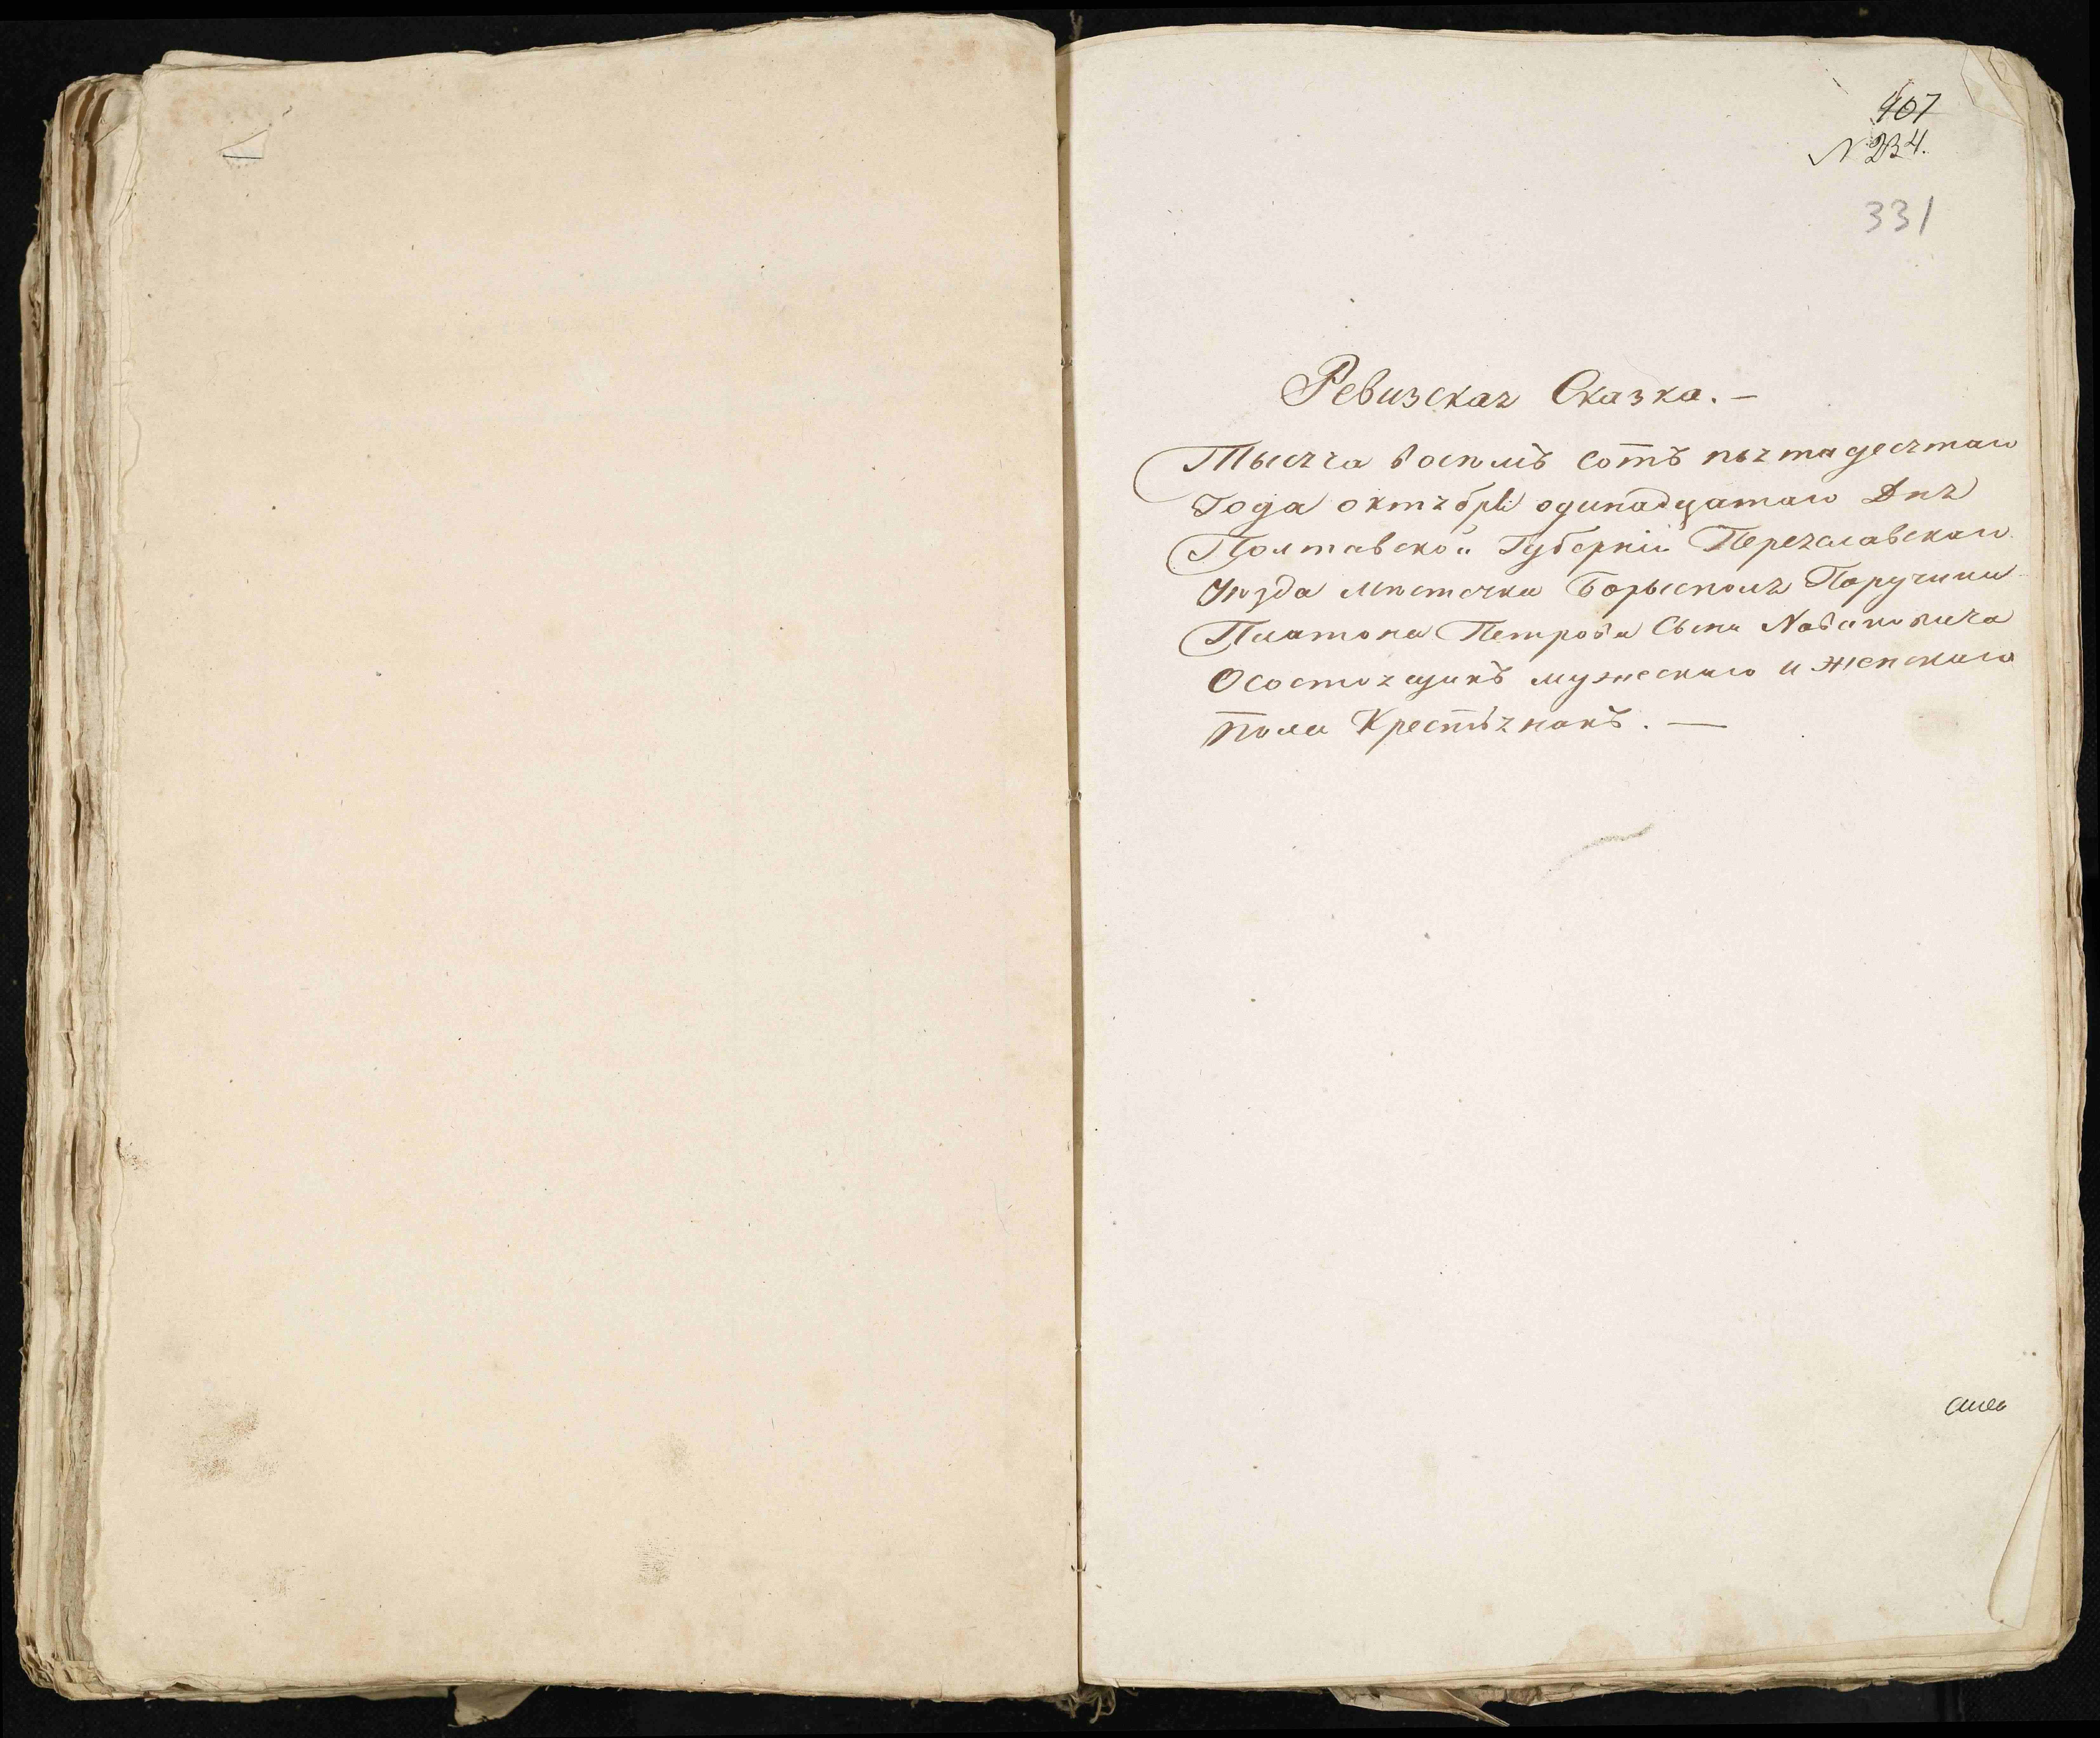 407
N 234.
331
Ревизская Сказка. —
Тысяча восемъ сотъ пятидесятаго
Года октября одинадцатаго Дня
Полтавской Губерніи Переяславскаго
Уѣзда мѣстечка Борысполя Поручика
Платона Петрова Сына
О состоящихъ мужескаго и женскаго
пола Крестьянахъ. —